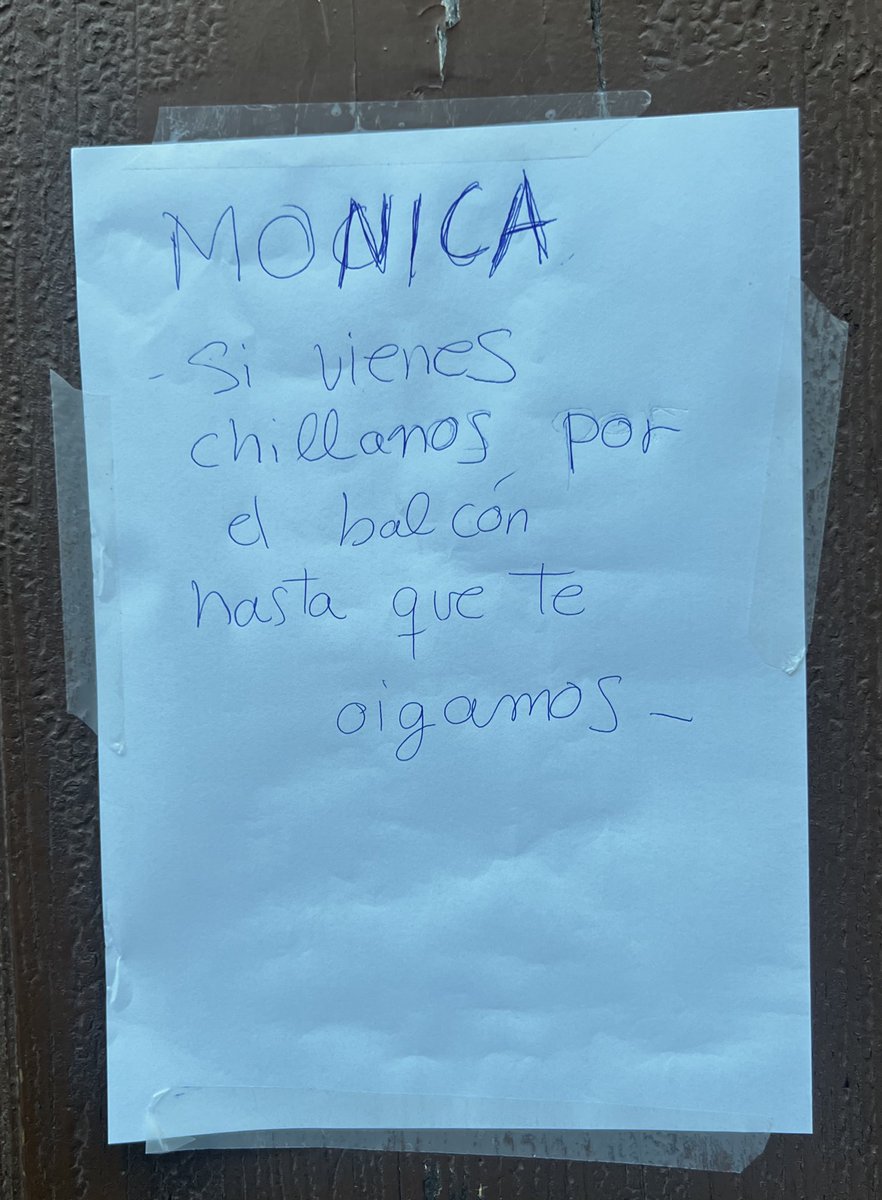 MONICA
- Si vienes
chillanos por
el balcón
hasta que te
oigamos -